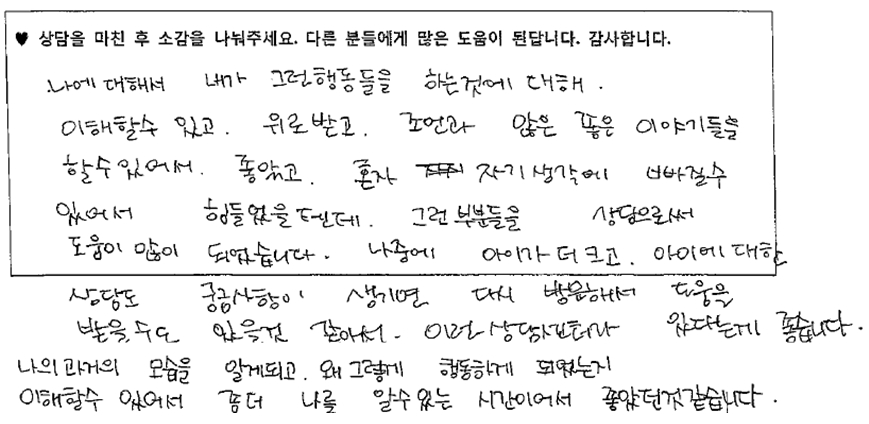 ♥ 상담을 마친 후 소감을 나눠주세요. 다른 분들에게 많은 도움이 된답니다. 감사합니다.
나에 대해서 내가 그런행동들을 하는것에 대해.
이해할수 있고. 위로받고. 조언과 많은 좋은 이야기들을
할수있어서. 좋았고. 혼자 자기생각에 빠질수
있어서 힘들었을텐데. 그런 부분들을 상담으로써
도움이 많이 되었습니다. 나중에 아이가 더 크고. 아이에 대한
상담도 궁금사항이 생기면 다시 방문해서 도움을
받을수도 있을것 같아서. 이런 상담센터가 있다는게 좋습니다.
나의 과거의 모습을 알게되고. 왜 그렇게 행동하게 되었는지
이해할수 있어서 좀더 나를 알수있는 시간이어서 좋았던것같습니다.